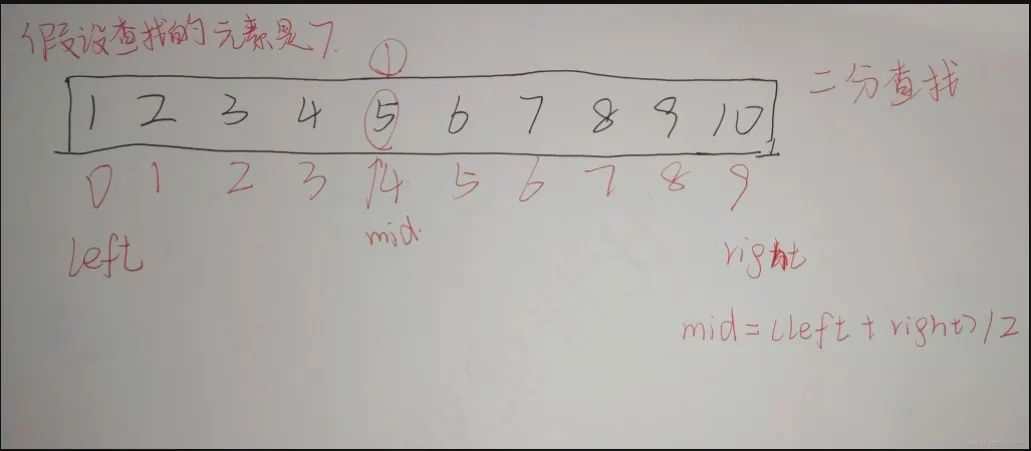 假设查找的元素是7.
①
二分查找
1 2 3 4 5 6 7 8 9 10
0 1 2 3 4 5 6 7 8 9
mid.
left
right
mid=(left+right)/2